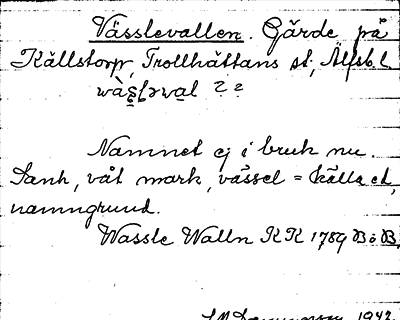 Vässlevallen. Gärde på
Källstorp, Trollhättans st., Älfsb. l.
Namnet ej i bruk nu.
Sank, våt mark, vässel = källa el.
namngrund.
Wassle Walln KK 1789 B o B.
1942